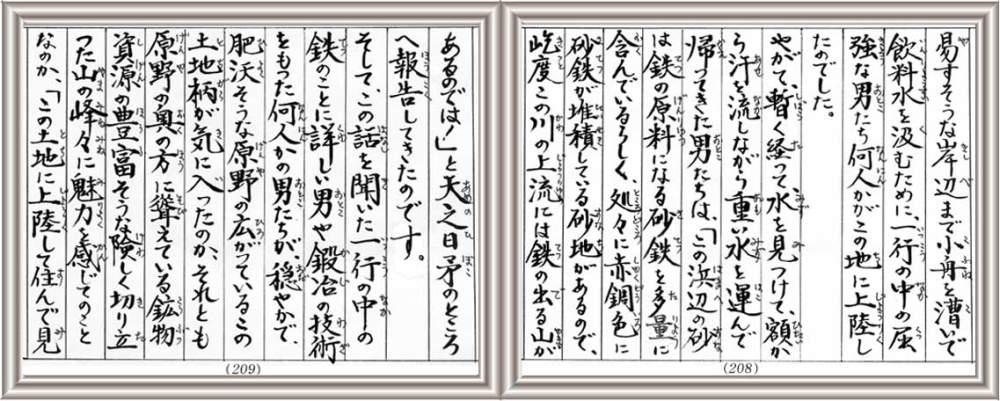 易すそうな岸辺まで小舟を漕いで
飲料水を汲むために、一行の中の屈
強な男たち何人かがこの地に上陸し
たのでした。
やがて、暫く経って、水を見つけて、額か
ら汗を流しながら重い水を運んで
帰ってきた男たちは、「この浜辺の砂
は鉄の原料になる砂鉄を多量に
含んでいるらしく、処々に赤銅色に
砂鉄が堆積している砂地があるので、
屹度この川の上流には鉄の出る山が
(208)
あるのでは!」と天之日矛のところ
へ報告してきたのです。
そして、この話を聞いた一行の中の
鉄のことに詳しい男や鍛冶の技術
をもった何人かの男たちが、穏やかで、
肥沃そうな原野の広がっているこの
土地柄が気に入ったのか、それとも
原野の奥の方に聳えている鉱物
資源の豊富そうな険しく切り立
った山の峰々に魅力を感じてのこと
なのか、「この土地に上陸して住んで見
(209)